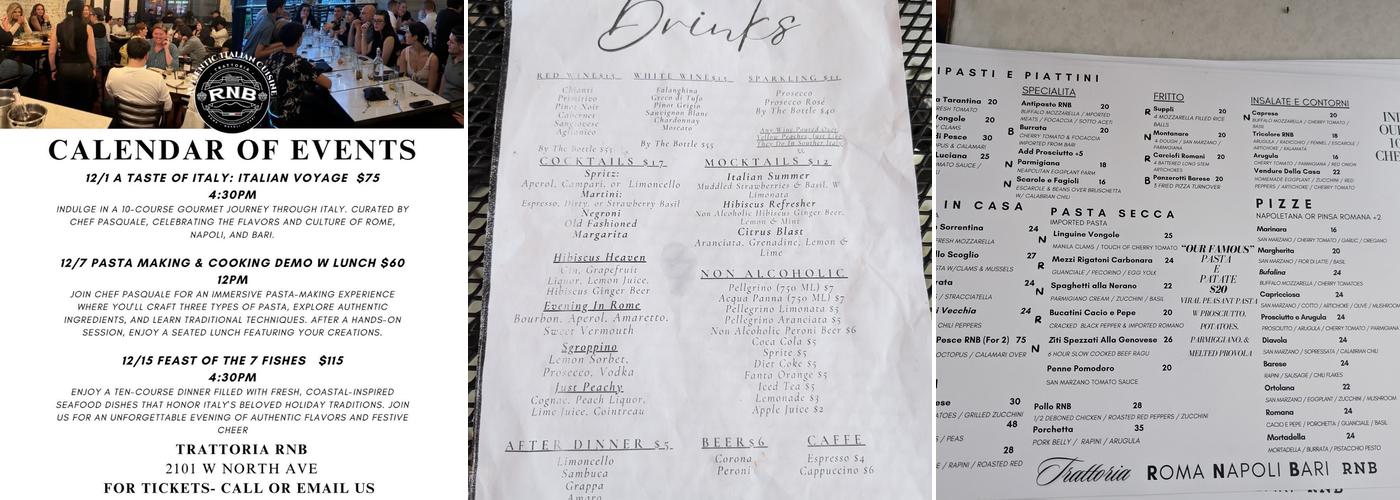 AUTHENTIC ITALIAN CUISINE
TRATTORIA
RNB
CALENDAR OF EVENTS
12/1 A TASTE OF ITALY: ITALIAN VOYAGE $75
4:30PM
INDULGE IN A 10-COURSE GOURMET JOURNEY THROUGH ITALY. CURATED BY
CHEF PASQUALE, CELEBRATING THE FLAVORS AND CULTURE OF ROME,
NAPOLI, AND BARI.
12/7 PASTA MAKING & COOKING DEMO W LUNCH $60
12PM
JOIN CHEF PASQUALE FOR AN IMMERSIVE PASTA-MAKING EXPERIENCE
WHERE YOU'LL CRAFT THREE TYPES OF PASTA, EXPLORE AUTHENTIC
INGREDIENTS, AND LEARN TRADITIONAL TECHNIQUES. AFTER A HANDS-ON
SESSION, ENJOY A SEATED LUNCH FEATURING YOUR CREATIONS.
12/15 FEAST OF THE 7 FISHES $115
4:30PM
ENJOY A TEN-COURSE DINNER FILLED WITH FRESH, COASTAL-INSPIRED
SEAFOOD DISHES THAT HONOR ITALY'S BELOVED HOLIDAY TRADITIONS. JOIN
US FOR AN UNFORGETTABLE EVENING OF AUTHENTIC FLAVORS AND FESTIVE
CHEER
TRATTORIA RNB
2101 W NORTH AVE
FOR TICKETS- CALL OR EMAIL US
Drinks
RED WINE$15
Chianti
Primitivo
Pinot Noir
Cabernet
Sangiovese
Aglianico
By The Bottle $55
WHITE WINE$15
Falanghina
Greco di Tufo
Pinot Grigio
Sauvignon Blanc
Chardonnay
Moscato
By The Bottle $55
SPARKLING $11
Prosecco
Prosecco Rosé
By The Bottle $40
Any Wine Poured Over
Yellow Peaches, Just Like
They Do In Souther Italy
COCKTAILS $17
Spritz:
Aperol, Campari, or Limoncello
Martini:
Espresso, Dirty, or Strawberry Basil
Negroni
Old Fashioned
Margarita
Hibiscus Heaven
Gin, Grapefruit
Liquor, Lemon Juice,
Hibiscus Ginger Beer
Evening In Rome
Bourbon, Aperol, Amaretto,
Sweet Vermouth
Sgroppino
Lemon Sorbet,
Prosecco, Vodka
Just Peachy
Cognac, Peach Liquor,
Lime Juice, Cointreau
MOCKTAILS $12
Italian Summer
Muddled Strawberries & Basil, W
Limonata
Hibiscus Refresher
Non Alcoholic Hibiscus Ginger Beer,
Lemon & Mint
Citrus Blast
Aranciata, Grenadine, Lemon &
Lime
NON ALCOHOLIC
Pellgrino (750 ML) $7
Acqua Panna (750 ML) $7
Pellegrino Limonata $3
Pellegrino Aranciata $5
Non Alcoholic Peroni Beer $6
Coca Cola $5
Sprite $5
Diet Coke $5
Fanta Orange $5
Iced Tea $3
Lemonade $3
Apple Juice $2
AFTER DINNER $5
Limoncello
Sambuca
Grappa
Amaro
BEER$6
Corona
Peroni
CAFFE
Espresso $4
Cappuccino $6
IPASTI E PIATTINI
a Tarantina 20
RESH TOMATO
Vongole 20
Y CLAMS
di Pesce 30
OPUS & CALAMARI
Luciana 25
TOMATO SAUCE /
SPECIALITA
Antipasto RNB 20
BUFFALO MOZZARELLA / IMPORTED
MEATS / FOCACCIA / SOTTO ACETI
B Burrata 20
CHERRY TOMATO & FOCACCIA
IMPORTED FROM BARI
Add Prosciutto +5
N Parmigiana 18
NEAPOLITAN EGGPLANT PARM
N Scarole e Fagioli 16
ESCAROLE & BEANS OVER BRUSCHETTA
W/ CALABRIAN CHILI
FRITTO
R Suppli 20
4 MOZZARELLA FILLED RICE
BALLS
N Montanare 20
4 DOUGH / SAN MARZANO /
PARMIGIANA
R Carciofi Romani 20
4 BATTERED LONG STEM
ARTICHOKES
B Panzerotti Barese 20
5 FRIED PIZZA TURNOVER
INSALATE E CONTORNI
N Caprese 20
BUFFALO MOZZARELLA / CHERRY TOMATO /
BASIL
Tricolore RNB 18
ARUGULA / RADICCHIO / FENNEL / ESCAROLE /
ARTICHOKE / KALAMATA
Arugula 16
CHERRY TOMATO / PARMIGIANA / RED ONION
Verdure Della Casa 22
HOMEMADE EGGPLANT / ZUCCHINI / RED
PEPPERS / ARTICHOKE / CHERRY TOMATO
IN CASA
Sorrentina 24 N
FRESH MOZZARELLA
llo Scoglio 27
STA W/CLAMS & MUSSELS R
rata 24
/ STRACCIATELLA N
i Vecchia 24
CHILI PEPPERS R
Pesce RNB (For 2) 75
OCTOPUS / CALAMARI OVER N
PASTA SECCA
IMPORTED PASTA
Linguine Vongole 25
MANILA CLAMS / TOUCH OF CHERRY TOMATO
Mezzi Rigatoni Carbonara 24
GUANCIALE / PECORINO / EGG YOLK
Spaghetti alla Nerano 22
PARMIGIANO CREAM / ZUCCHINI / BASIL
Bucatini Cacio e Pepe 20
CRACKED BLACK PEPPER & IMPORTED ROMANO
Ziti Spezzati Alla Genovese 26
6 HOUR SLOW COOKED BEEF RAGU
Penne Pomodoro 20
SAN MARZANO TOMATO SAUCE
"OUR FAMOUS"
PASTA
E
PATATE
$20
VIRAL PEASANT PASTA
W PROSCIUTTO,
POTATOES,
PARMIGGIANO, &
MELTED PROVOLA
PIZZE
NAPOLETANA OR PINSA ROMANA +2
Marinara 16
SAN MARZANO / CHERRY TOMATO / GARLIC / OREGANO
Margherita 20
SAN MARZANO / FIOR DI LATTE / BASIL
Bufalina 24
BUFFALO MOZZARELLA / CHERRY TOMATOES
Capricciosa 24
SAN MARZANO / COTTO / ARTICHOKE / OLIVE / MUSHROOM
Prosciutto e Arugula 24
PROSCIUTTO / ARUGULA / CHERRY TOMATO / PARMIGIANA
Diavola 24
SAN MARZANO / SOPRESSATA / CALABRIAN CHILI
Barese 24
RAPINI / SAUSAGE / CHILI FLAKES
Ortolana 22
SAN MARZANO / EGGPLANT / ZUCCHINI / MUSHROOM
Romana 24
CACIO E PEPE / PORCHETTA / GUANCIALE / BASIL
Mortadella 24
MORTADELLA / BURRATA / PISTACCHIO PESTO
ese 30
ATOES / GRILLED ZUCCHINI
48
/ PEAS
28
E / RAPINI / ROASTED RED
Pollo RNB 28
1/2 DEBONED CHICKEN / ROASTED RED PEPPERS / ZUCCHINI
Porchetta 35
PORK BELLY / RAPINI / ARUGULA
Trattoria ROMA NAPOLI BARI RNB